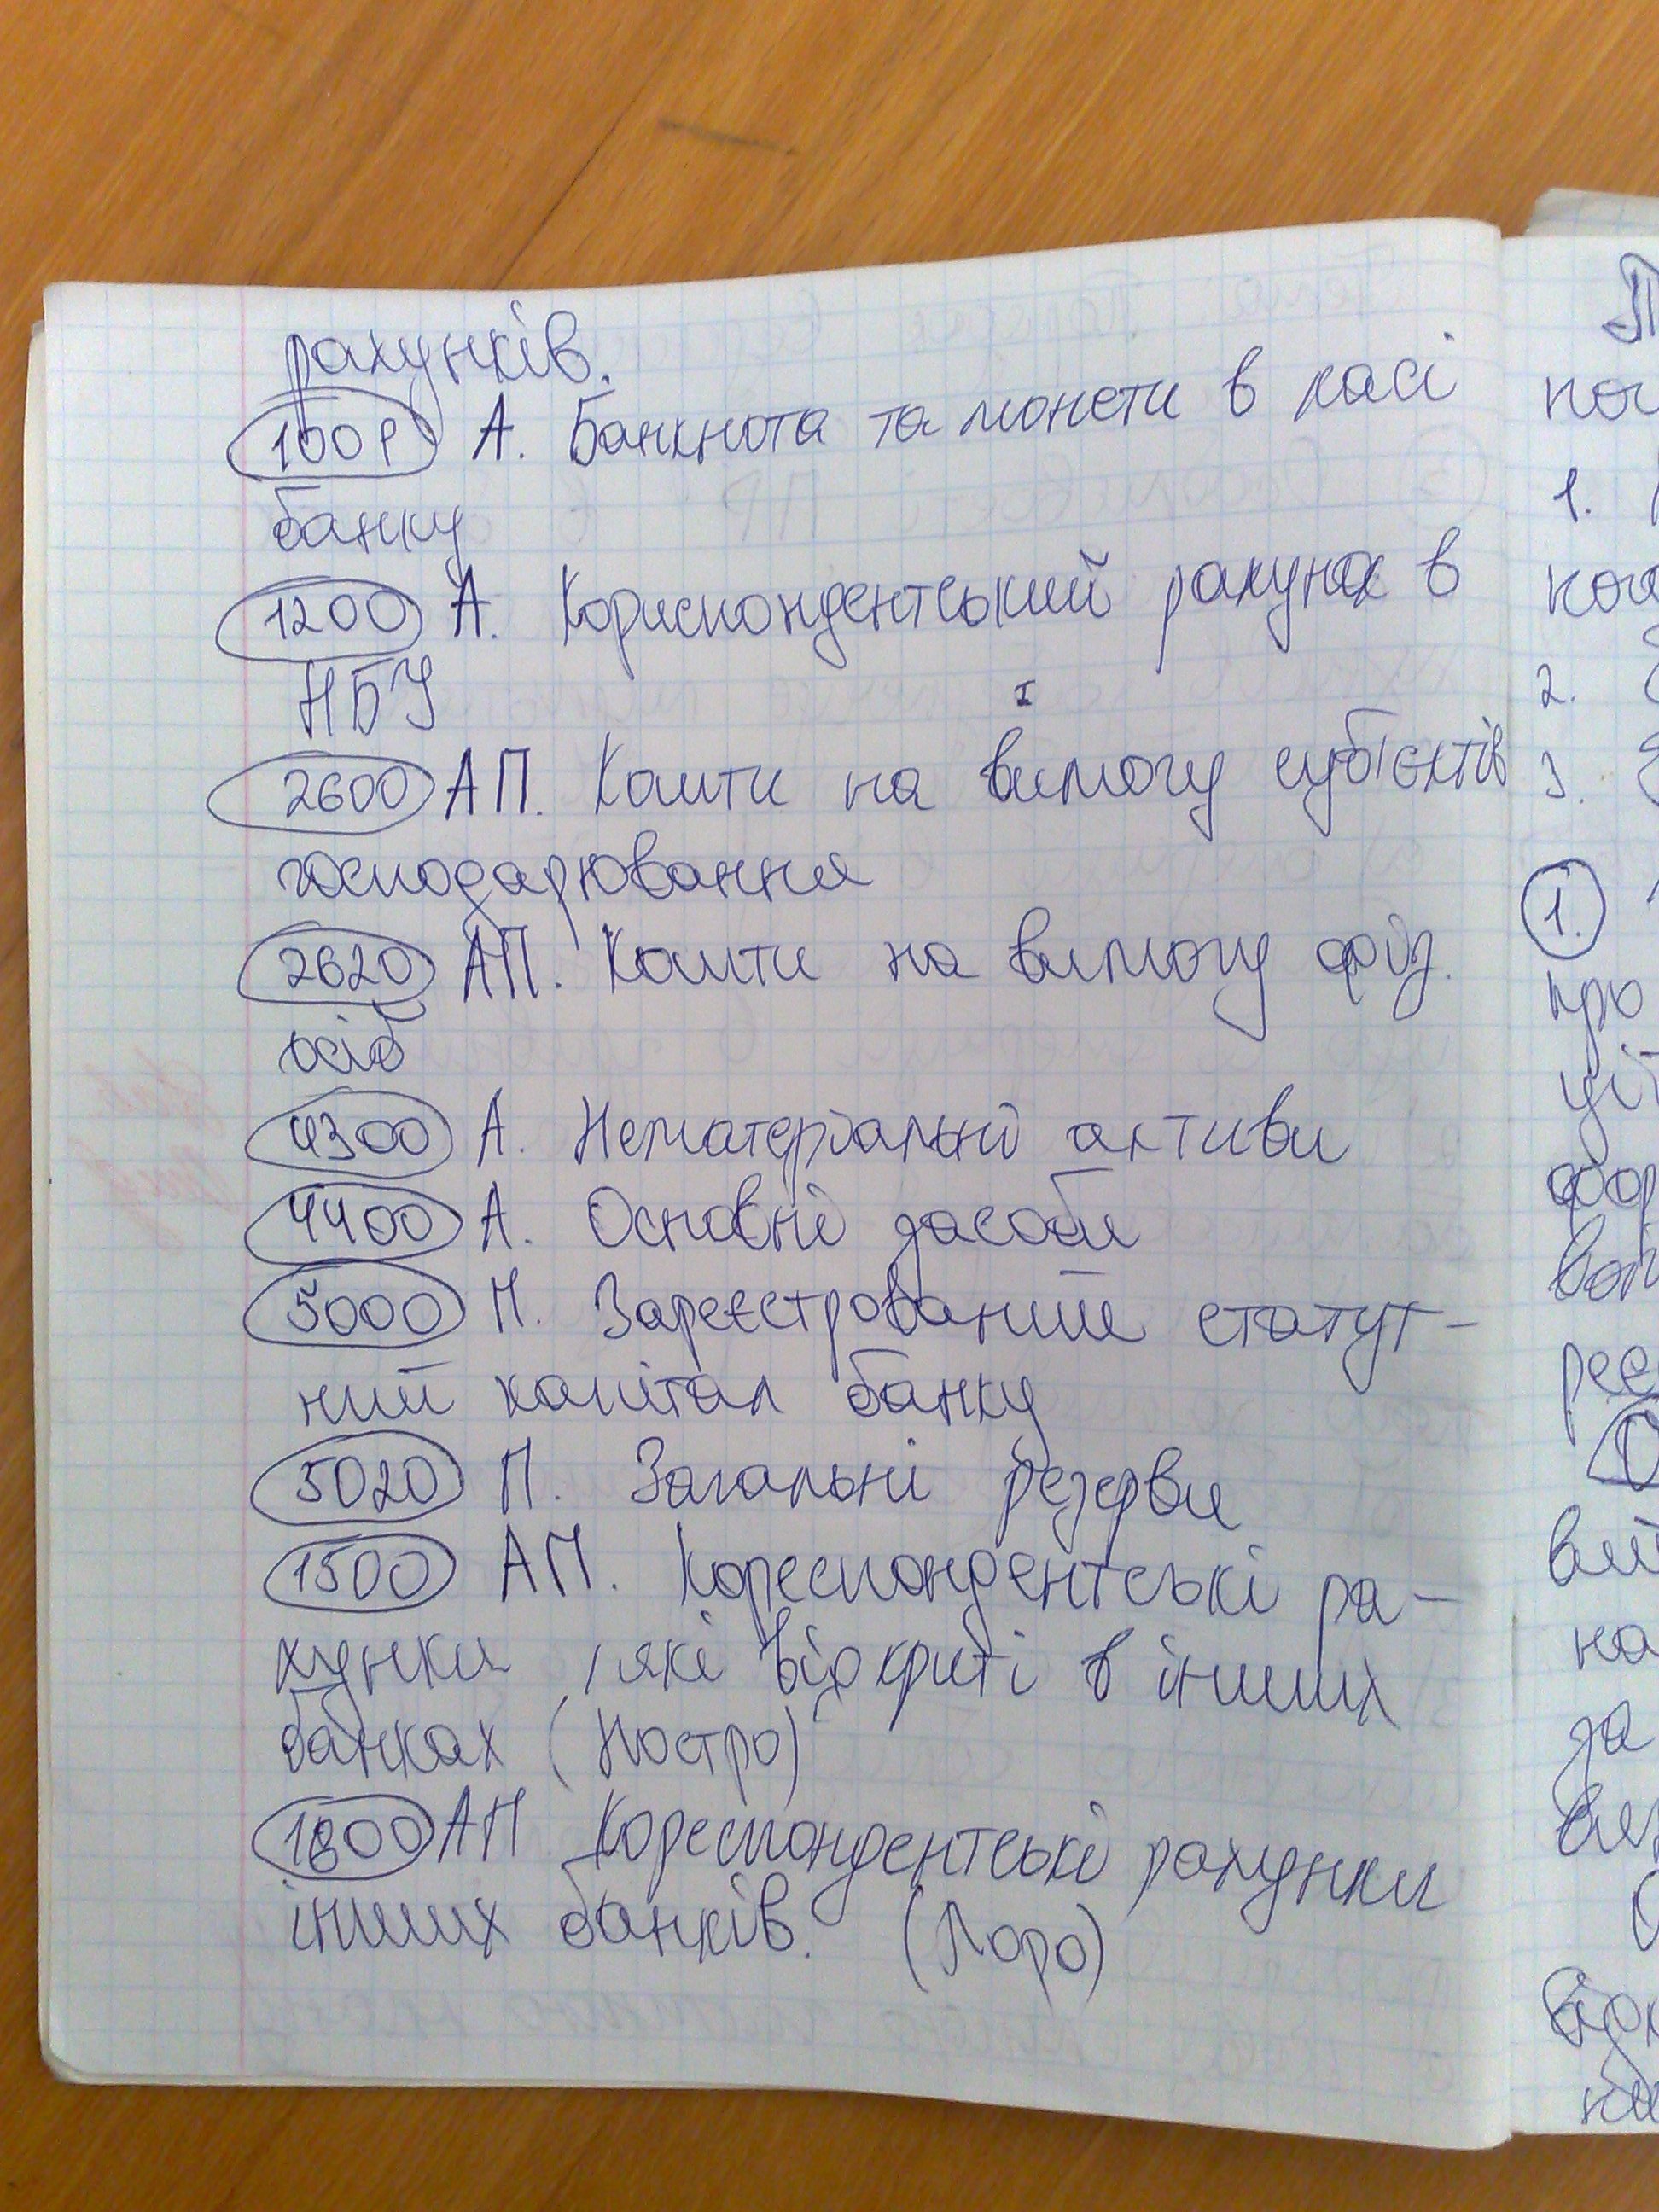 рахунків.
1001 А. Банкнота та монети в касі
банку
1200 А. Кориспондентський рахунок в
НБУ
2600 АП. Кошти на вимогу суб'єктів
господарювання
2620 АП. Кошти на вимогу фіз.
осіб
4300 А. Нематеріальні активи
4400 А. Основні засоби
5000 П. Зареєстрований статут-
ний капітал банку
5020 П. Загальні резерви
1500 АП. Кореспондентські ра-
хунки, які відкриті в інших
банках (Ностро)
1600 АП Кореспондентські рахунки
інших банків. (Лоро)
1.
2.
3.
1.
про
на
за